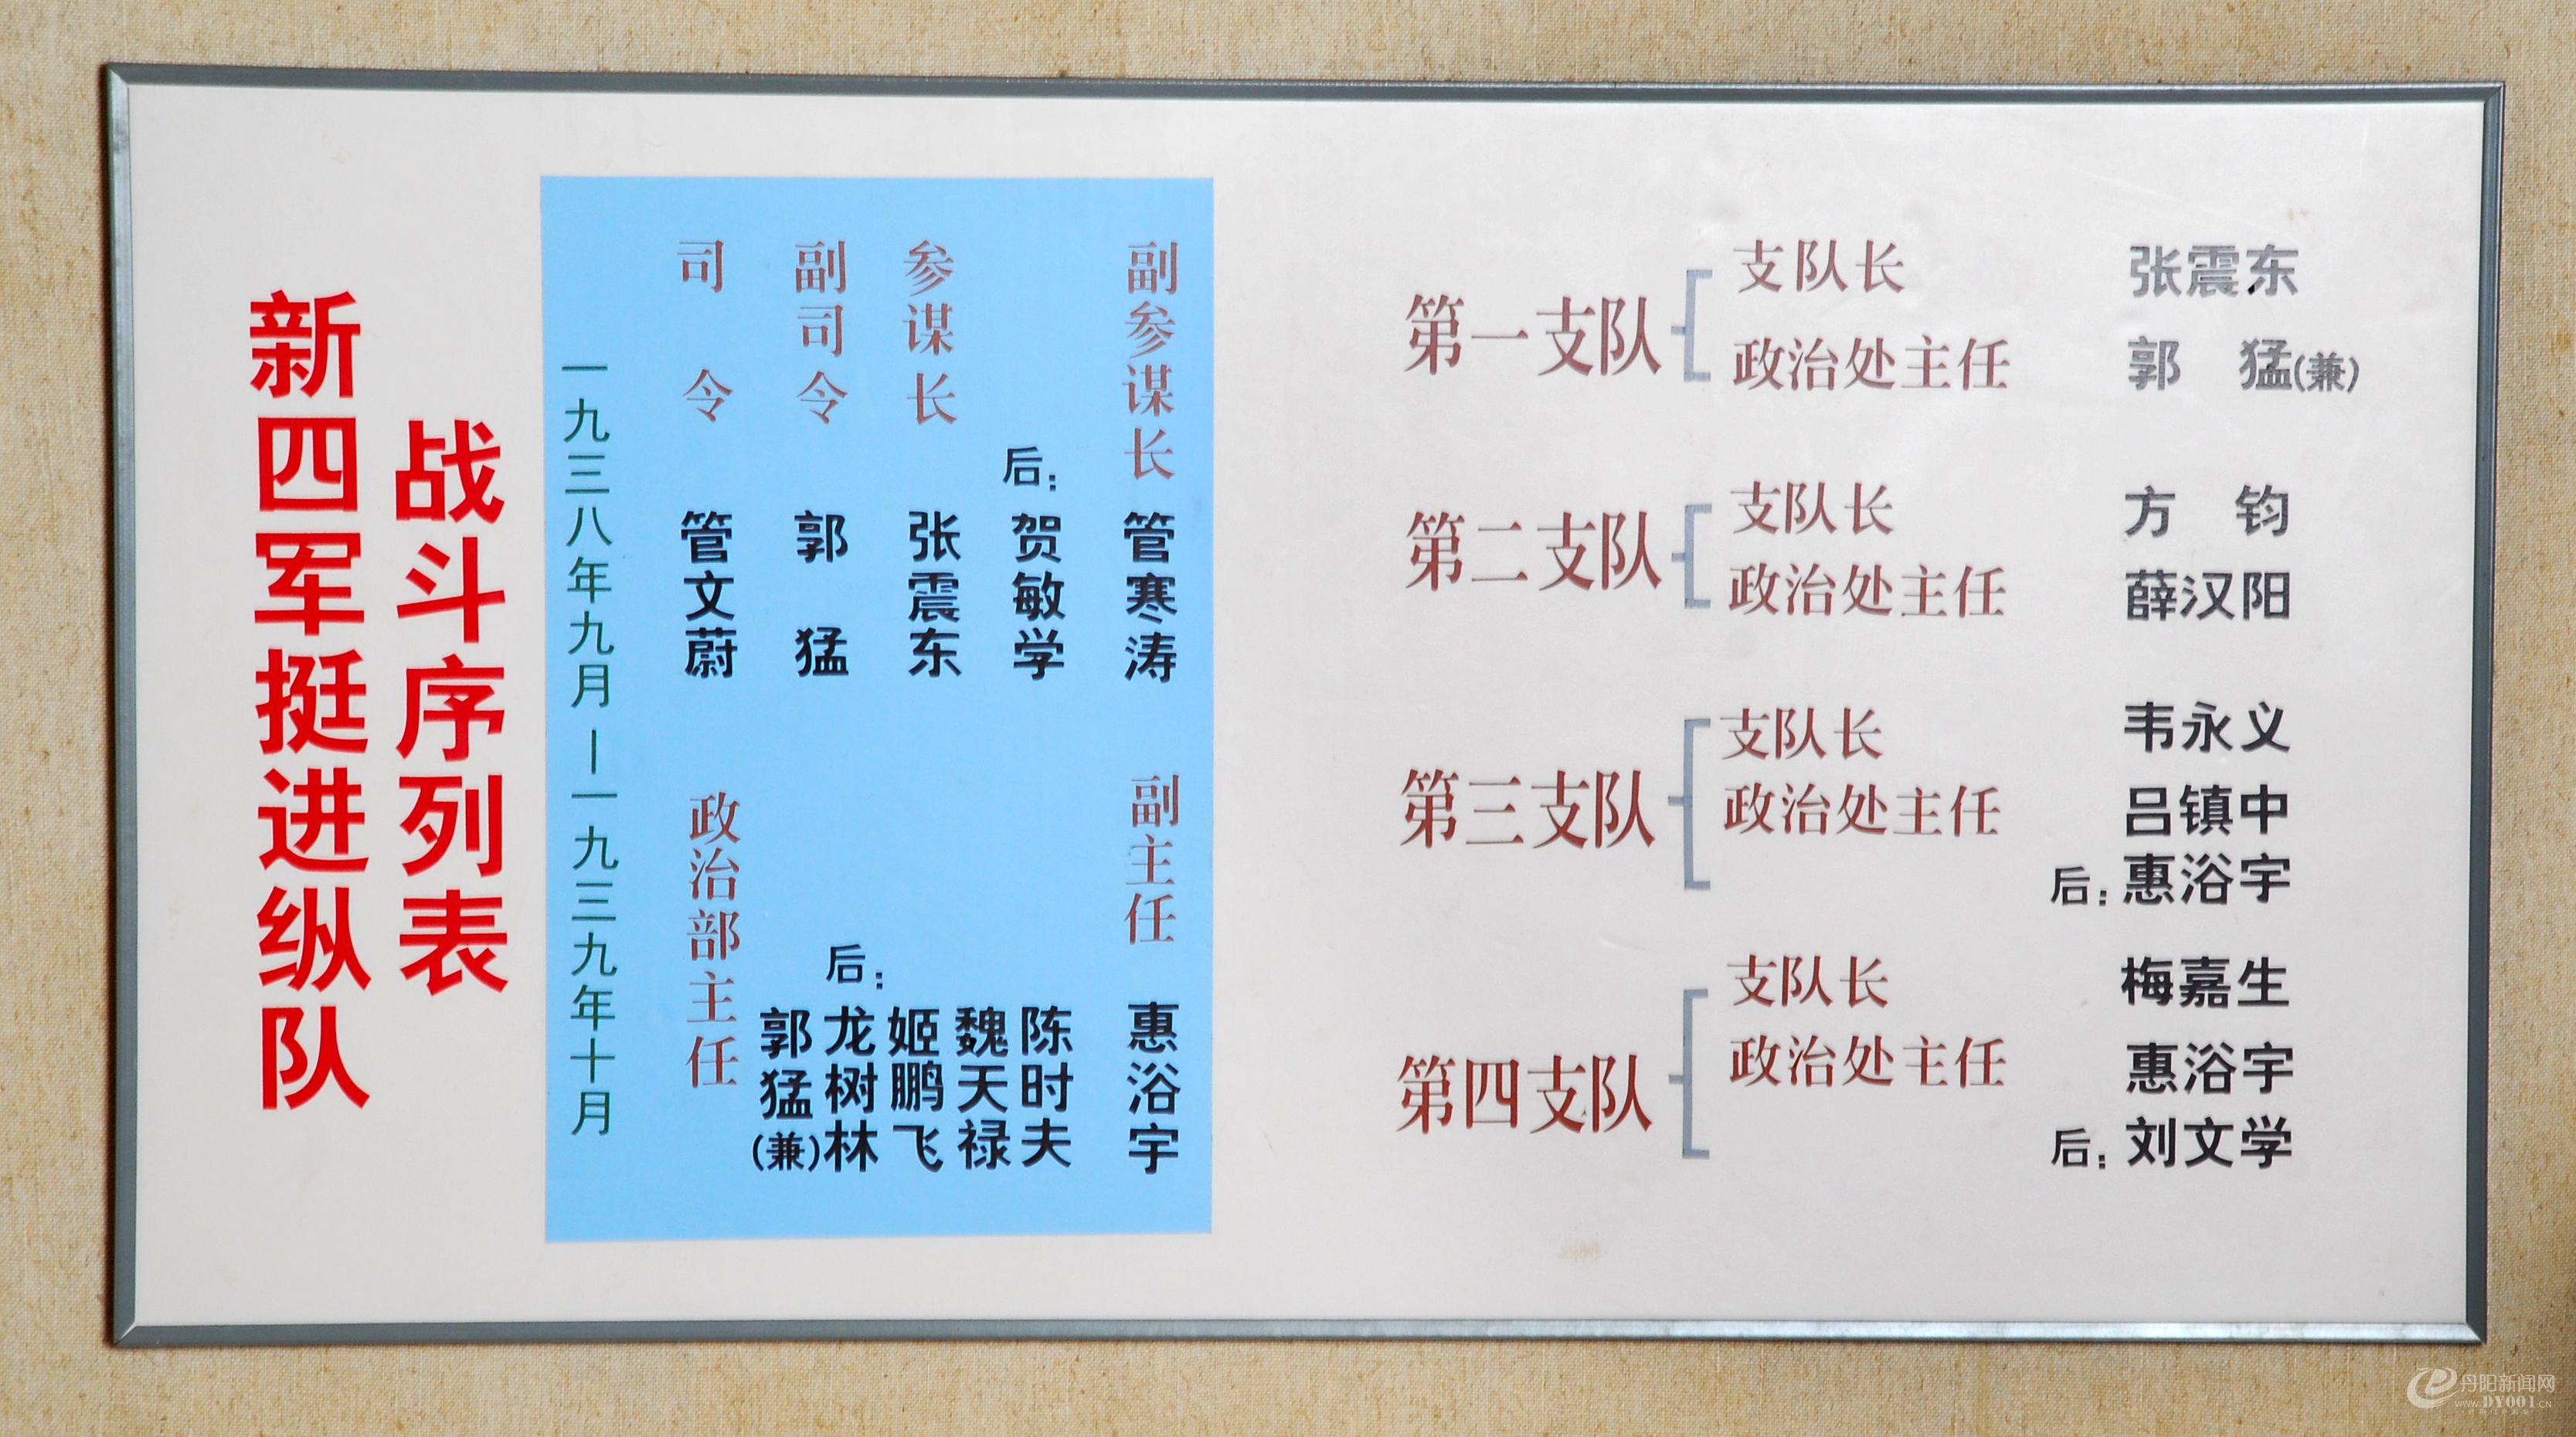 新四军挺进纵队
战斗序列表
一九三八年九月—一九三九年十月
司令 管文蔚
副司令 郭猛
参谋长 张震东
后：贺敏学
副参谋长 管寒涛
政治部主任
郭猛(兼)
后：龙树林
姬鹏飞
魏天禄
陈时夫
副主任 惠浴宇
第一支队
支队长 张震东
政治处主任 郭猛(兼)
第二支队
支队长 方钧
政治处主任 薛汉阳
第三支队
支队长 韦永义
政治处主任 吕镇中
后：惠浴宇
第四支队
支队长 梅嘉生
政治处主任 惠浴宇
后：刘文学
丹阳新闻网
www.DY001.CN